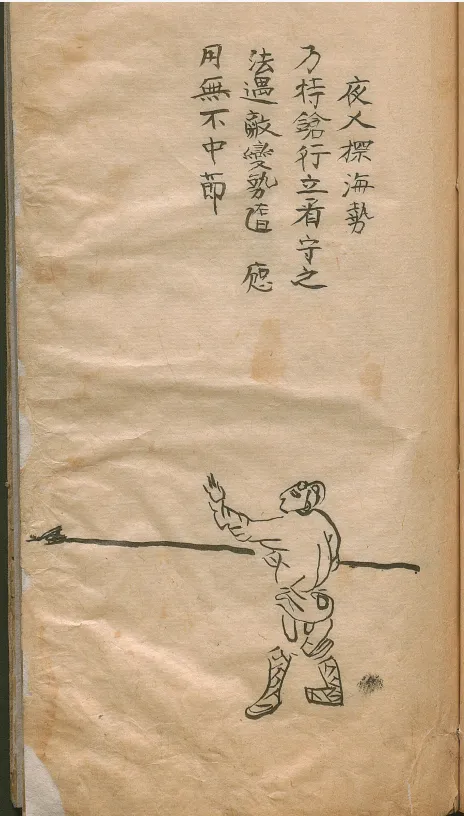 夜人探海勢
乃持鎗行立看守之
法遇敵變势随 應
用無不中節